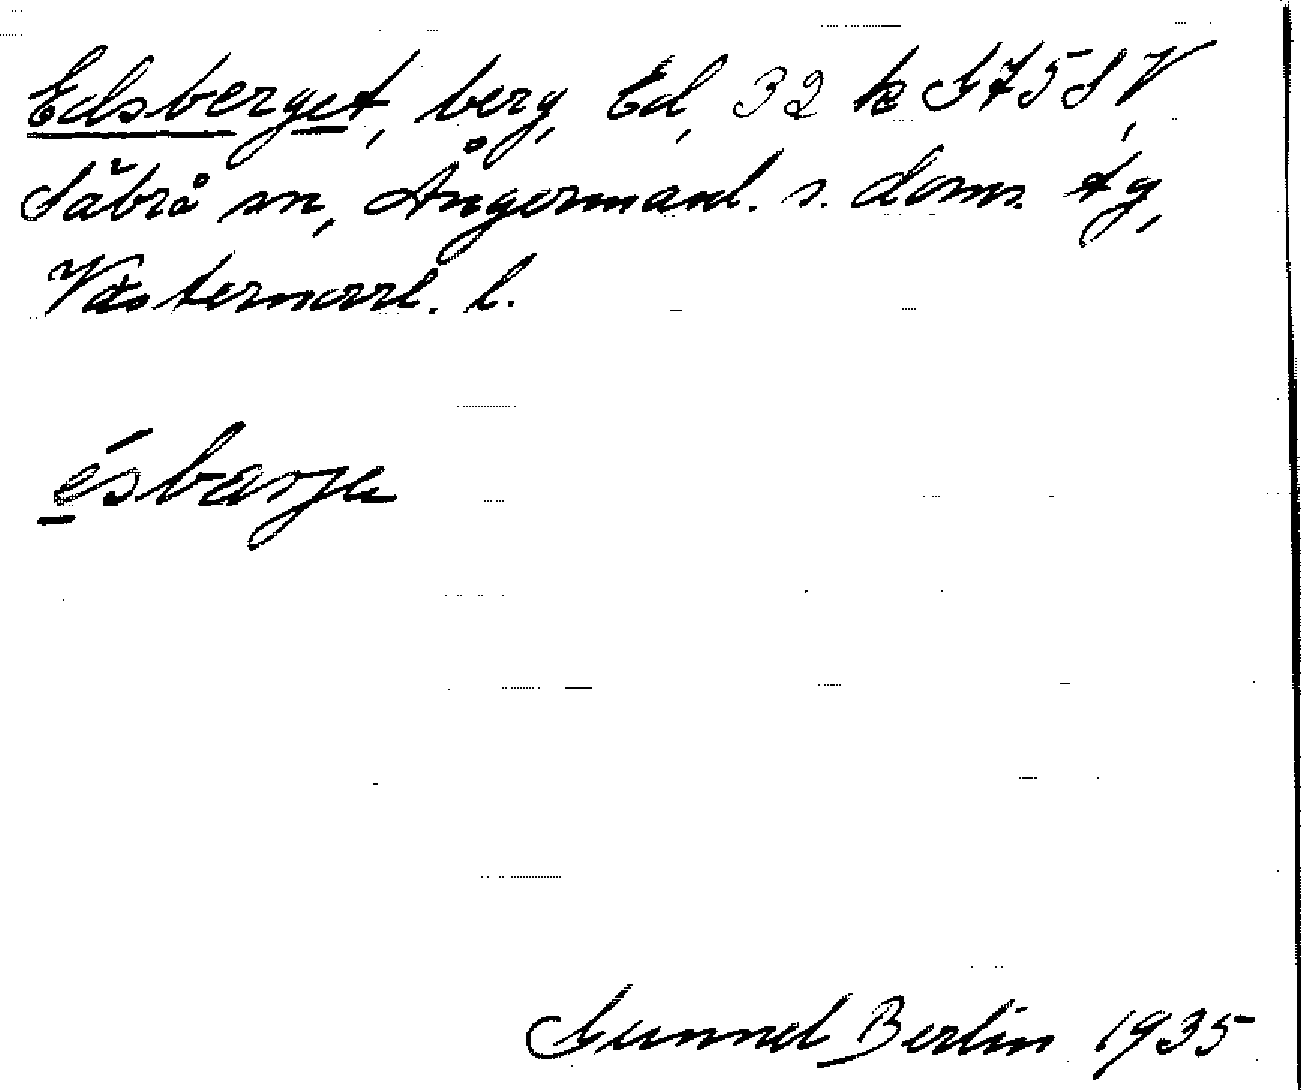 Edsberget, berg, Ed, 32 k S75SV,
Säbrå sn, Ångermanl. s. doms. tg,
Västernorrl. l.
ésbærje
Gunnel Berlin 1935